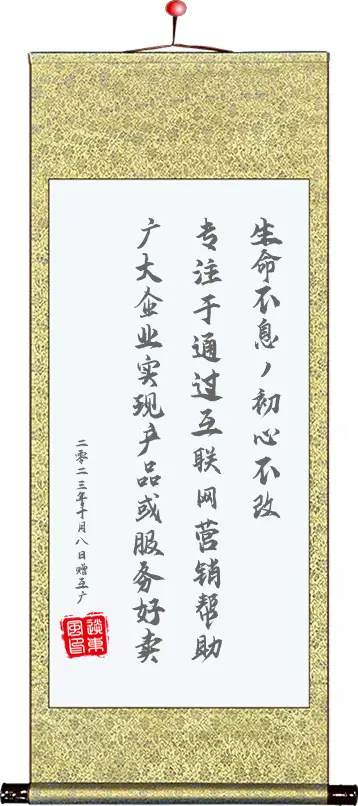 生命不息，初心不改
专注于通过互联网营销帮助
广大企业实现产品或服务好卖
二零二三年十月八日赠互广